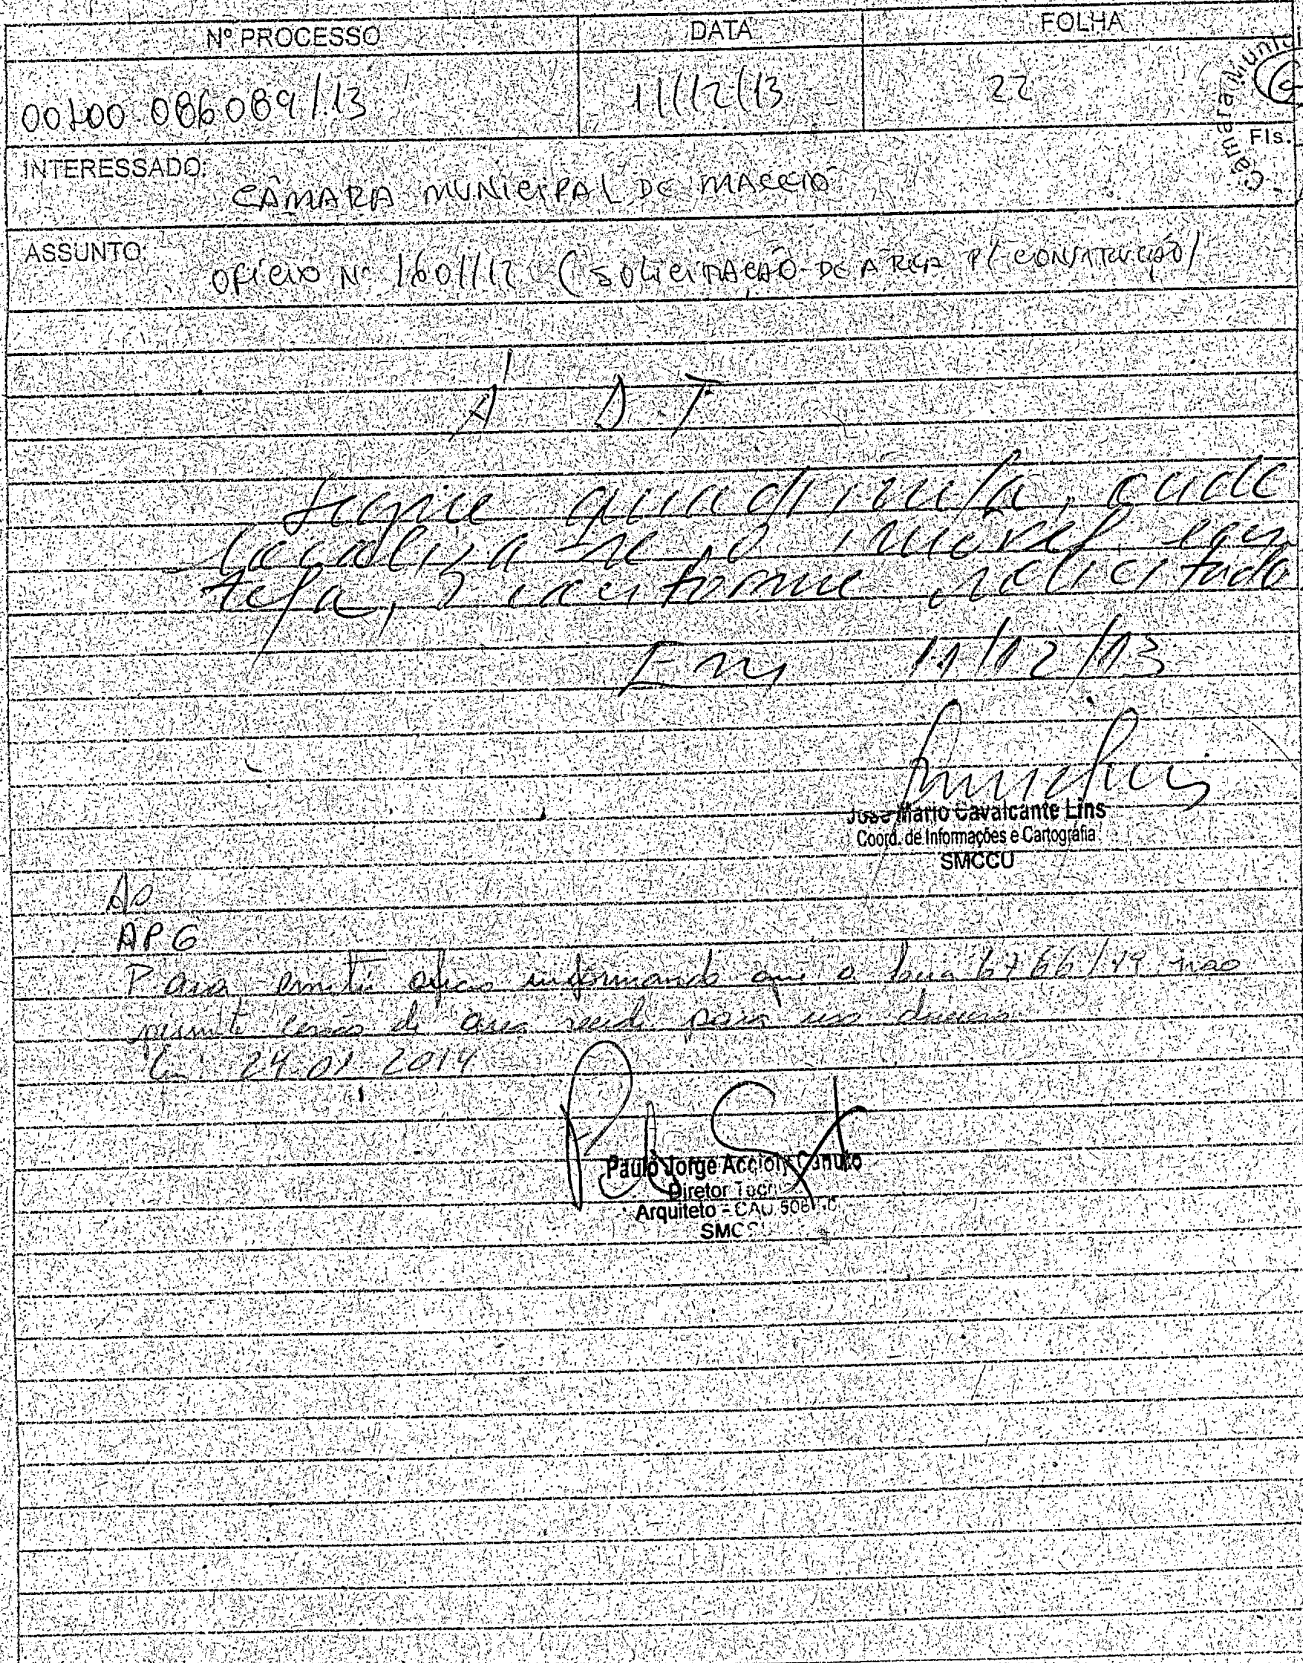 Nº PROCESSO DATA FOLHA
00100.086089/13 11/12/13 22
Câmara Munici
Fls.
INTERESSADO: CÂMARA MUNICIPAL DE MACEIÓ
ASSUNTO: OFÍCIO Nº 1601/12 (SOLICITAÇÃO DE ÁREA P/ CONSTRUÇÃO)
À D.T
Segue quadrícula, onde
localiza-se o imóvel em
tela, conforme solicitado
Em 11/12/13
José Mario Cavalcante Lins
Coord. de Informações e Cartografia
SMCCU
Ao
APG
Para emitir ofício informando que a 6766/79 não
permite de área para uso
Em 24.01.2014
Paulo Jorge Accioly Canuto
Diretor
Arquiteto - CAU